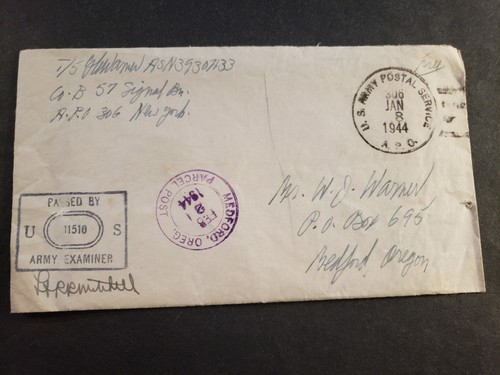 T/5 G Warner ASN 39307133
Co. B 57 Signal Bn.
A.P.O 306 New York.
Free
U. S. ARMY POSTAL SERVICE
306
JAN
8
1944
A.P.O.
Mr. W. J. Warner
P. O. Box 695
Medford, Oregon
MEDFORD, OREG.
FEB
2
1944
PARCEL POST
PASSED BY
U 11510 S
ARMY EXAMINER